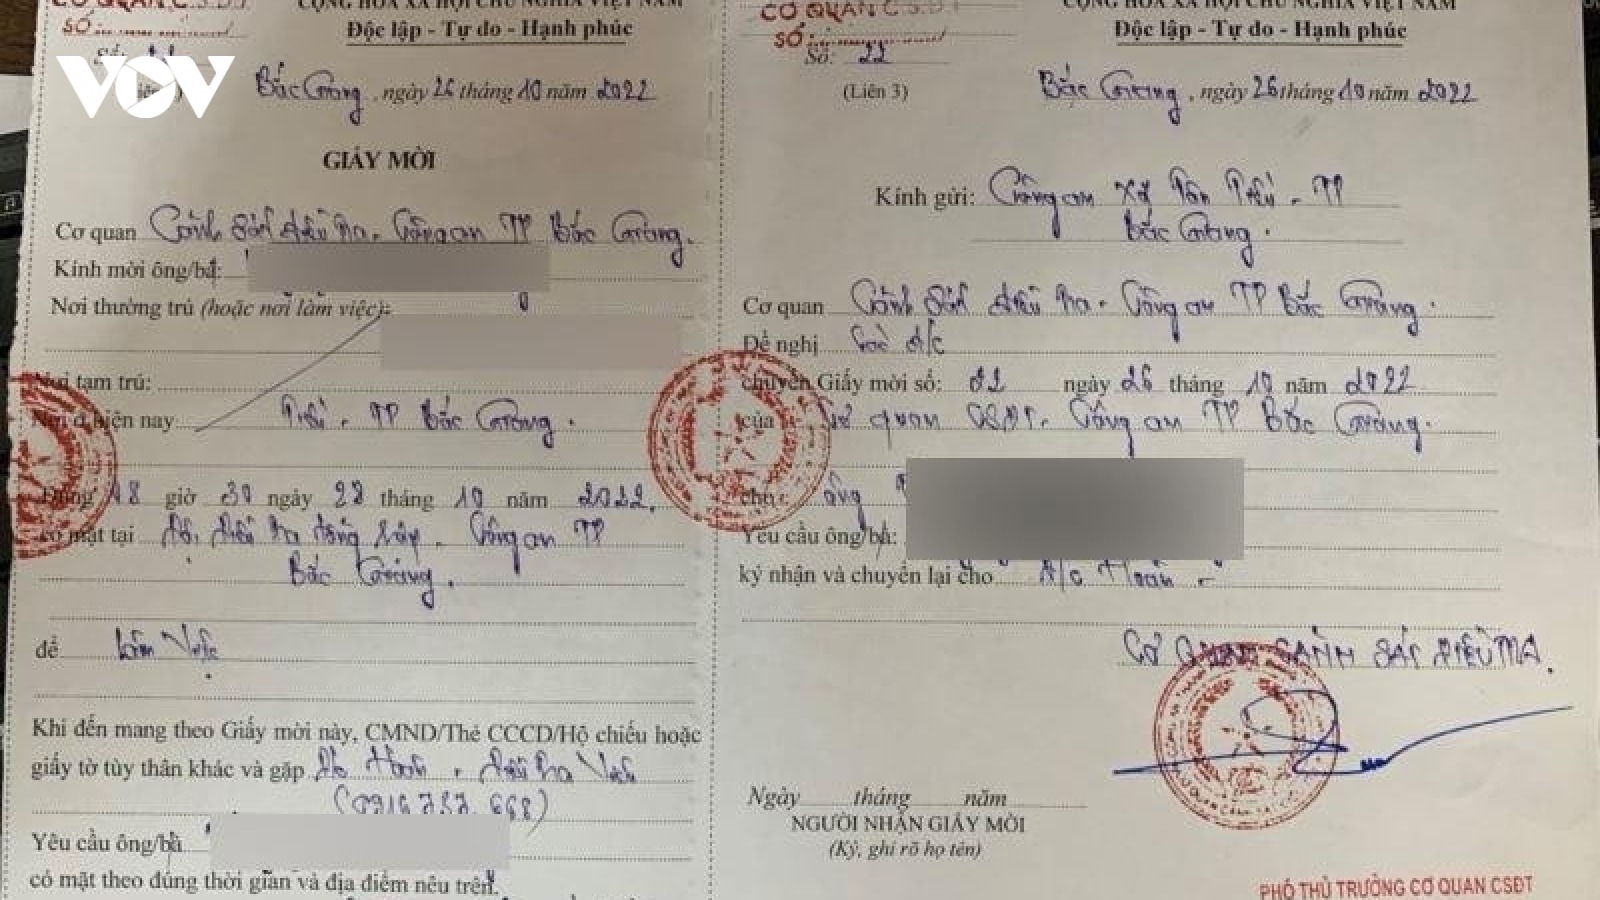 CƠ QUAN C.S.Đ.T
SỐ:
VOV
CỘNG HÒA XÃ HỘI CHỦ NGHĨA VIỆT NAM
Độc lập - Tự do - Hạnh phúc
Bắc Giang, ngày 26 tháng 10 năm 2022
GIẤY MỜI
Cơ quan Cảnh sát điều tra - Công an TP Bắc Giang.
Kính mời ông/bà:
Nơi thường trú (hoặc nơi làm việc):
Nơi tạm trú:
Nơi ở hiện nay Triều - TP Bắc Giang.
Đúng giờ 30 ngày tháng 10 năm 2022.
có mặt tại Đội điều tra tổng hợp - Công an TP
Bắc Giang.
để Làm việc
Khi đến mang theo Giấy mời này, CMND/Thẻ CCCD/Hộ chiếu hoặc
giấy tờ tùy thân khác và gặp Đ/c - Điều tra viên
Yêu cầu ông/bà
có mặt theo đúng thời gian và địa điểm nêu trên.
CƠ QUAN C.S.Đ.T
SỐ:
Số: 22
(Liên 3)
CỘNG HÒA XÃ HỘI CHỦ NGHĨA VIỆT NAM
Độc lập - Tự do - Hạnh phúc
Bắc Giang, ngày 26 tháng 10 năm 2022
Kính gửi: Công an xã Tân - TP
Bắc Giang.
Cơ quan Cảnh sát điều tra - Công an TP Bắc Giang.
Đề nghị Các đ/c
chuyển Giấy mời số: ngày 26 tháng 10 năm 2022
của Cơ quan CSĐT - Công an TP Bắc Giang.
cho: ông
Yêu cầu ông/bà:
ký nhận và chuyển lại cho Đ/c
CƠ QUAN CẢNH SÁT ĐIỀU TRA.
Ngày tháng năm
NGƯỜI NHẬN GIẤY MỜI
(Ký, ghi rõ họ tên)
PHÓ THỦ TRƯỞNG CƠ QUAN CSĐT